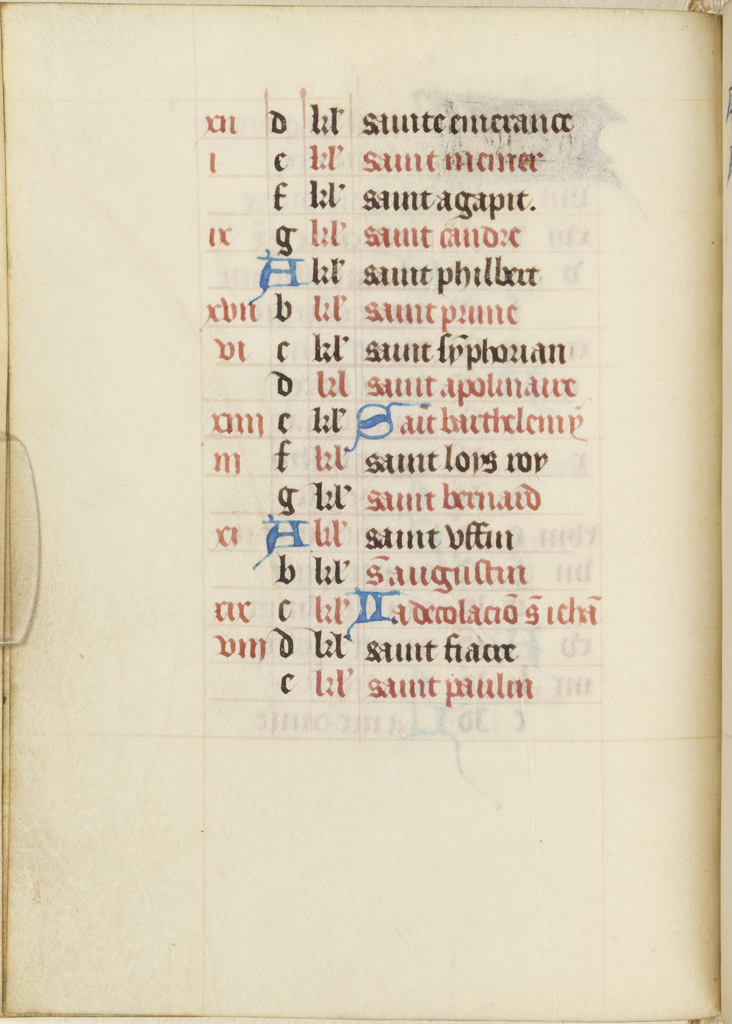 xii d kl' sainte emerance
i e kl' saint memer
f kl' saint agapit.
ix g kl' saint candre
A kl' saint philbert
xvii b kl' saint prime
vi c kl' saint syphorian
d kl saint apolinaire
xiiii e kl' Sait barthelemy
iii f kl' saint loys roy
g kl' saint bernard
xi A kl' saint uffin
b kl' s augustin
xix c kl' La decolacio s iehã
viii d kl' saint fiacre
e kl' saint paulin